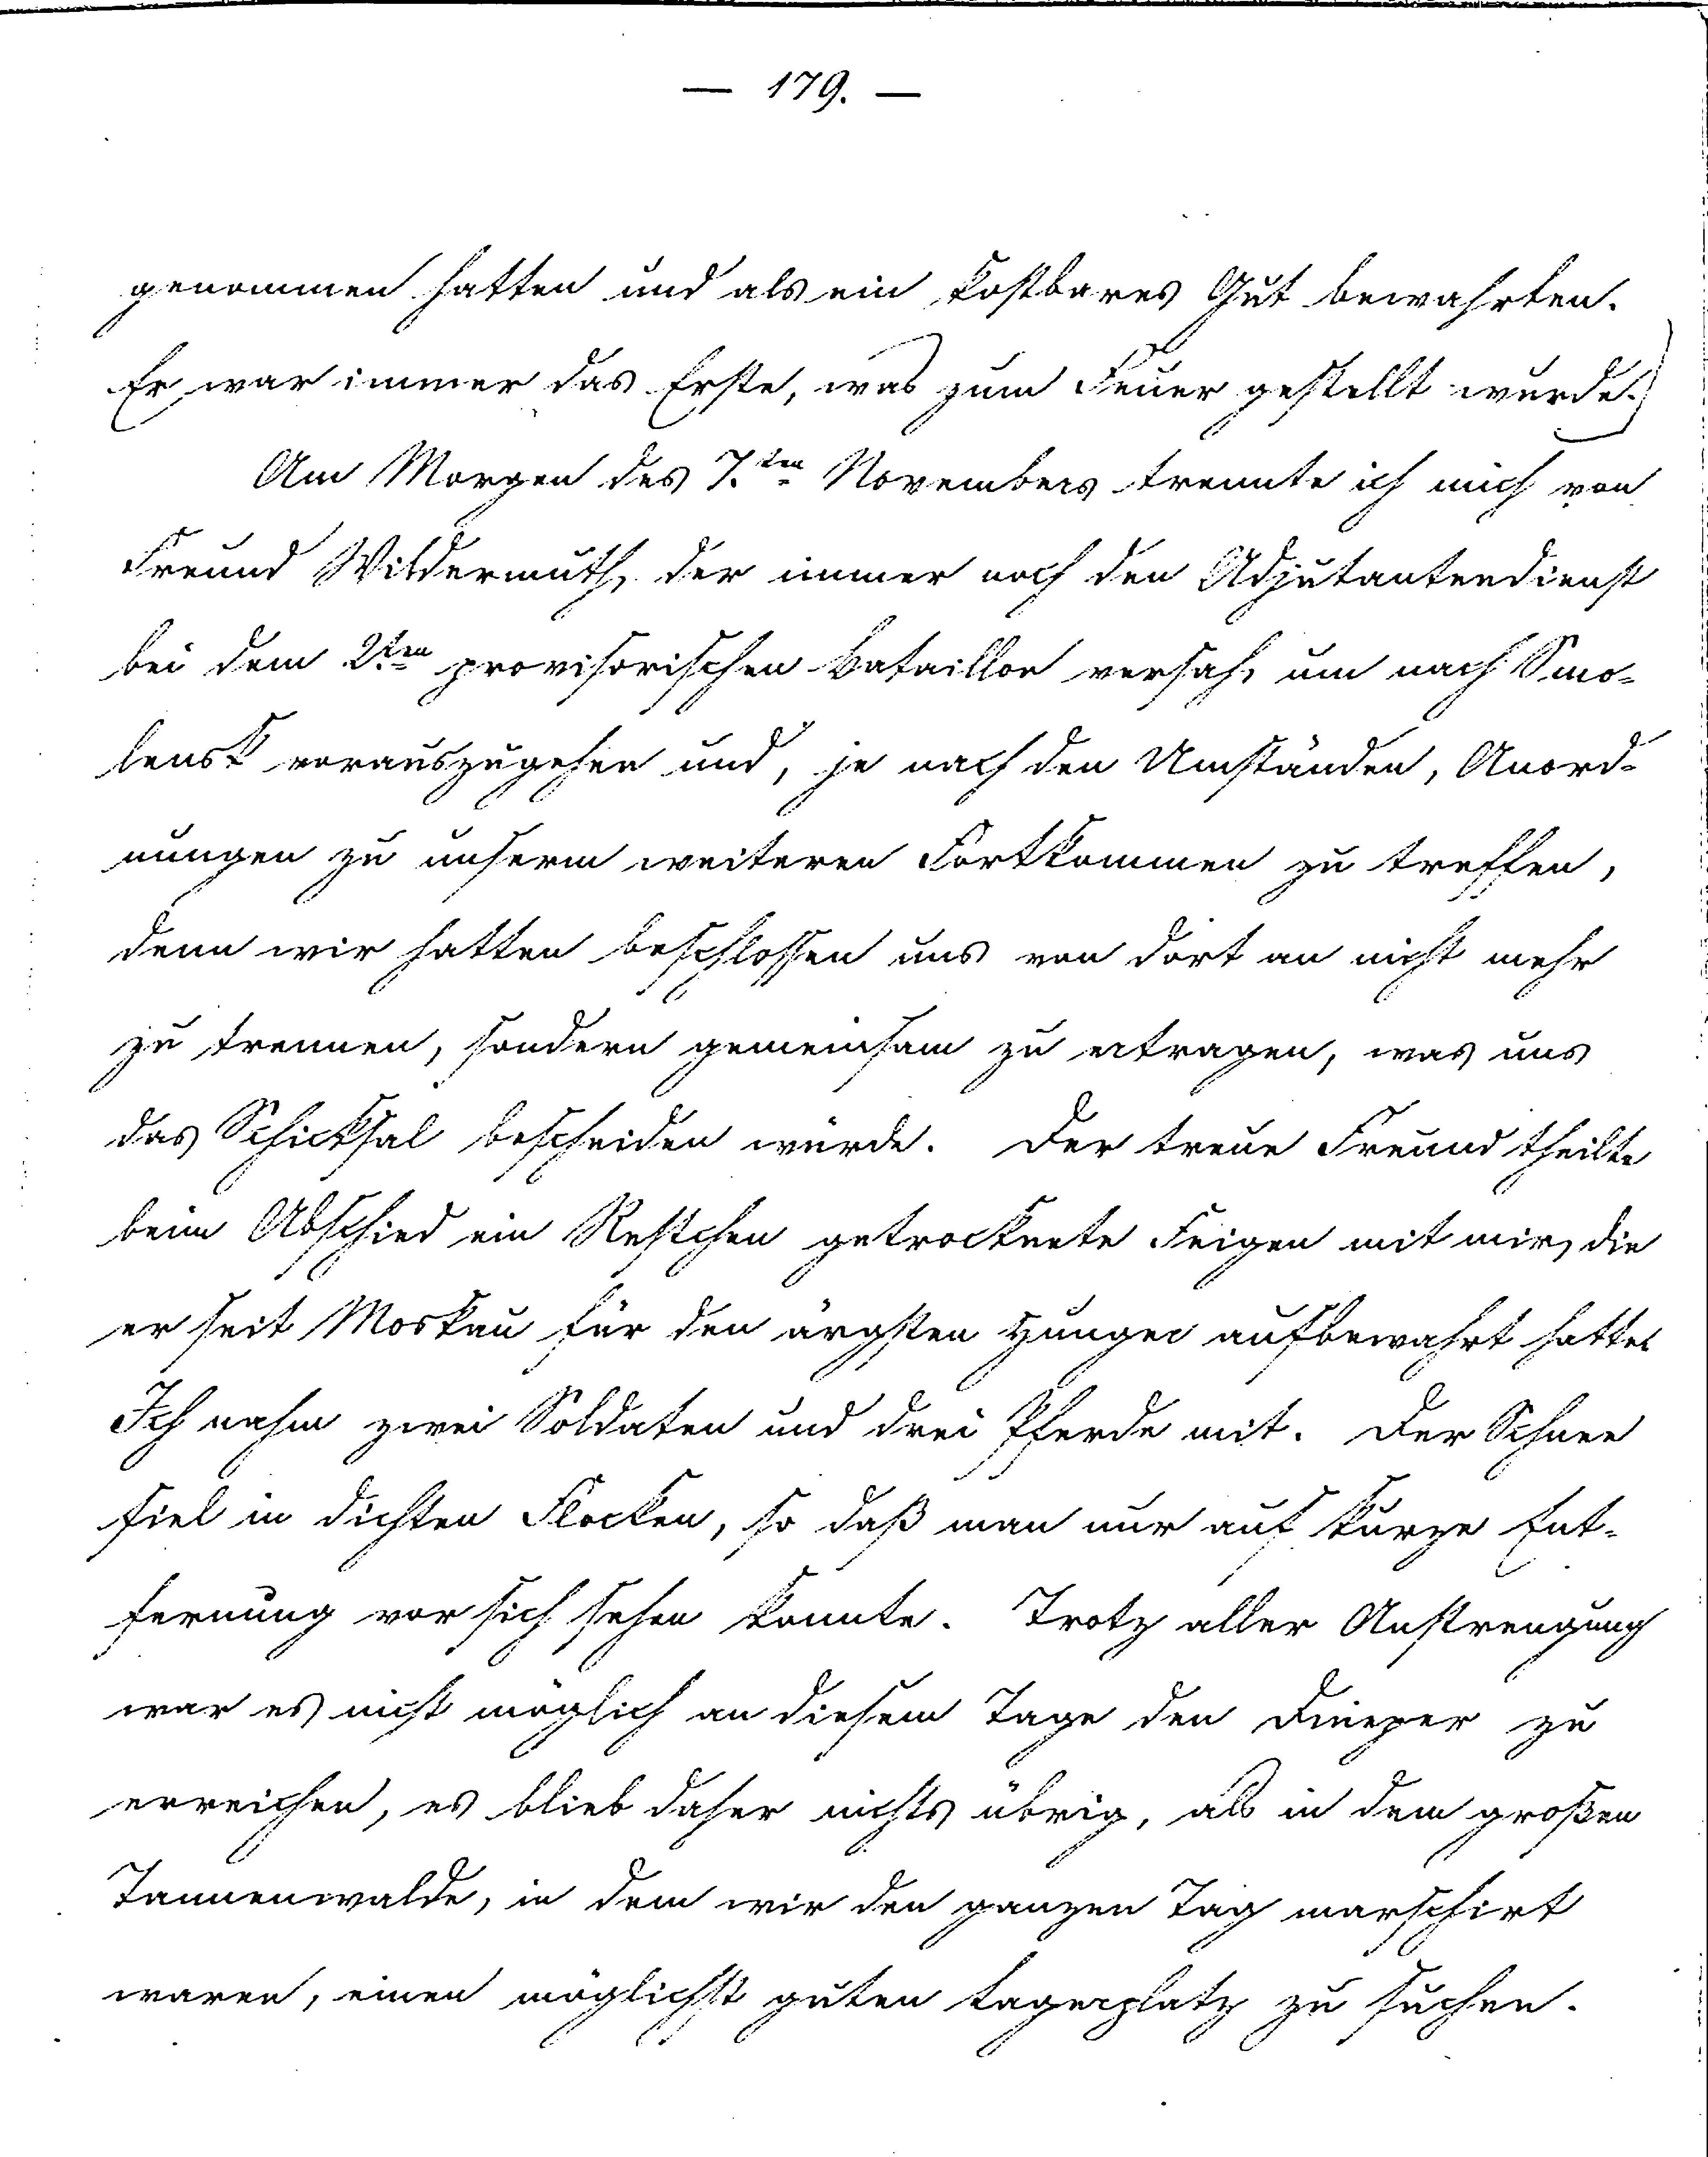 — 179. —
genommen hatten und als ein kostbares Gut bewahrten.
Er war immer das Erste, was zum Feuer gestellt wurde.)
Am Morgen des 7.ten Novembers trennte ich mich von
Freund Wildermuth, der immer noch den Adjutantendienst
bei dem 2ten provisorischen Bataillon versah, um nach Smo-
lensk vorauszugehen und, je nach den Umständen, Anord-
nungen zu unserm weiteren Fortkommen zu treffen,
denn wir hatten beschlossen uns von dort an nicht mehr
zu trennen, sondern gemeinsam zu ertragen, was uns
das Schicksal bescheiden würde. Der treue Freund theilte
beim Abschied ein Restchen getrocknete Feigen mit mir, die
er seit Moskau für den ärgsten Hunger aufbewahrt hatte.
Ich nahm zwei Soldaten und drei Pferde mit. Der Schnee
fiel in dichten Flocken, so daß man nur auf kurze Ent-
fernung vor sich sehen konnte. Trotz aller Anstrengung
war es nicht möglich an diesem Tage den Dnieper zu
erreichen, es blieb daher nichts übrig, als in dem großen
Tannenwalde, in dem wir den ganzen Tag marschirt
waren, einen möglichst guten Lagerplatz zu suchen.